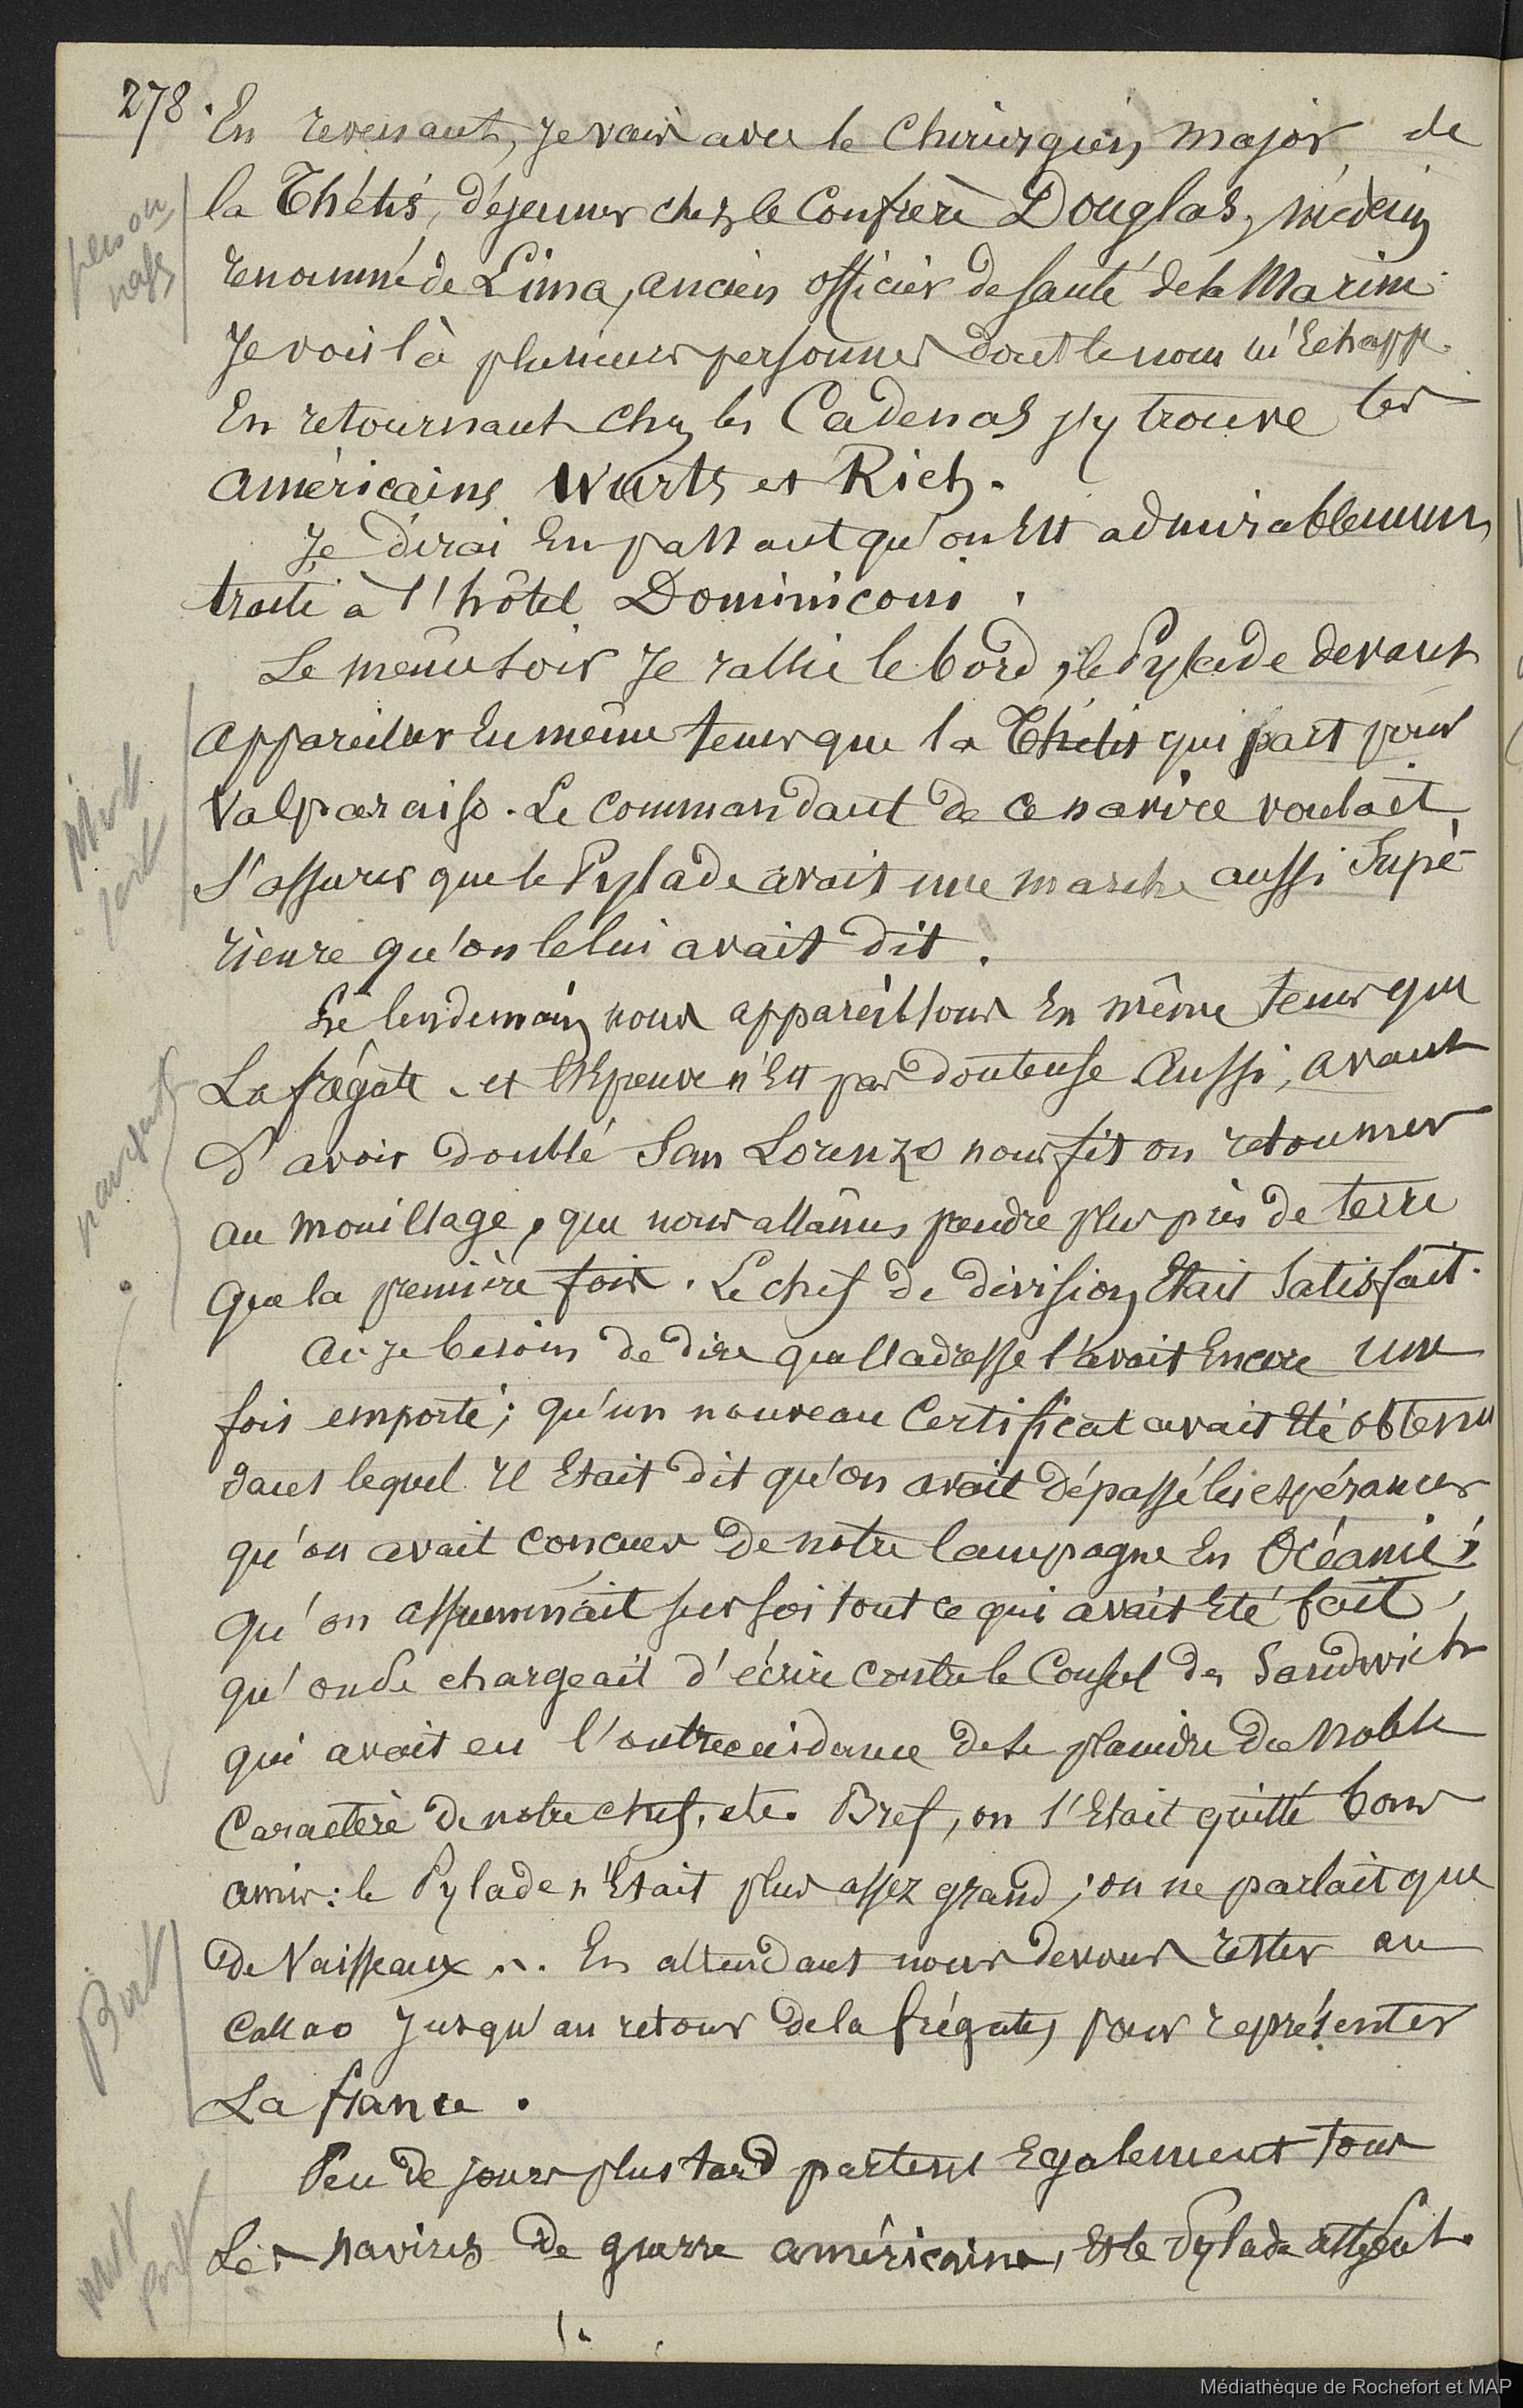 278.
En revenant, je vais avec le chirurgien major de
la Thétis, déjeuner chez le confrère Douglas, médecin
renommé de Lima, ancien officier de santé de la Marine
Je vois là plusieurs personnes dont le nom m'échappe.
En retournant chez les Cadenas j'y trouve les
américains Wurts et Rich.
Je dirai en passant qu'on est admirablement
traité à l'hôtel Dominiconi.
Le même soir je rallie le bord, le Pylade devant
appareiller en même tems que la Thétis qui part pour
Valparaiso. Le commandant de ce navire voulait
s'assurer que le Pylade avait une marche aussi supé-
rieure qu'on le lui avait dit.
Le lendemain nous appareillons en même tems que
La frégate et l'épreuve n'est pas douteuse Aussi, avant
d'avoir doublé San Lorenzo nous fit on retourner
au mouillage, que nous allâmes prendre plus près de terre
que la première fois. Le chef de division était satisfait.
Ai-je besoin de dire que l'adresse l'avait encore une
fois emporté; qu'un nouveau certificat avait été obtenu
dans lequel il était dit qu'on avait dépassé les espérances
qu'on avait concues de notre campagne en Océanie;
qu'on assummait sur soi tout ce qui avait été fait,
qu'on se chargeait d'écrire contre le Consul des Sandwich
qui avait eu l'outrecuidance de se plaindre du noble
caractère de notre chef, etc. Bref, on s'était quitté bons
amis: le Pylade n'était plus assez grand; on ne parlait que
de Vaisseaux... En attendant nous devons rester au
Callao jusqu'au retour de la frégate, pour représenter
La france.
Peu de jours plus tard partent également tous
Les navires de guerre américains, et le Pylade
personnages